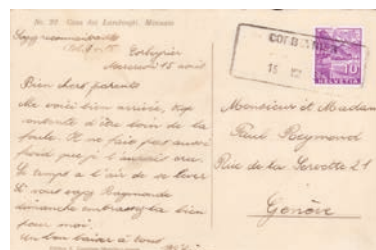 Nr. 22 Casa dei Landrogt, Monsax
Corbeyrier
Mercredi 15 août
Bien chers parents
Me voici bien arrivée, top
contente d'être loin de la
foule. Il ne fait pas aussi
froid que je l'aurais cru.
Le temps a l'air de se lever
Si vous voyez Raymonde
dimanche embrassez la bien
pour moi.
Un bon baiser à tous
CORBEYRIER
15 VIII
10
HELVETIA
Monsieur et Madame
Paul Reymond
Rue de la Servette 21
Genève